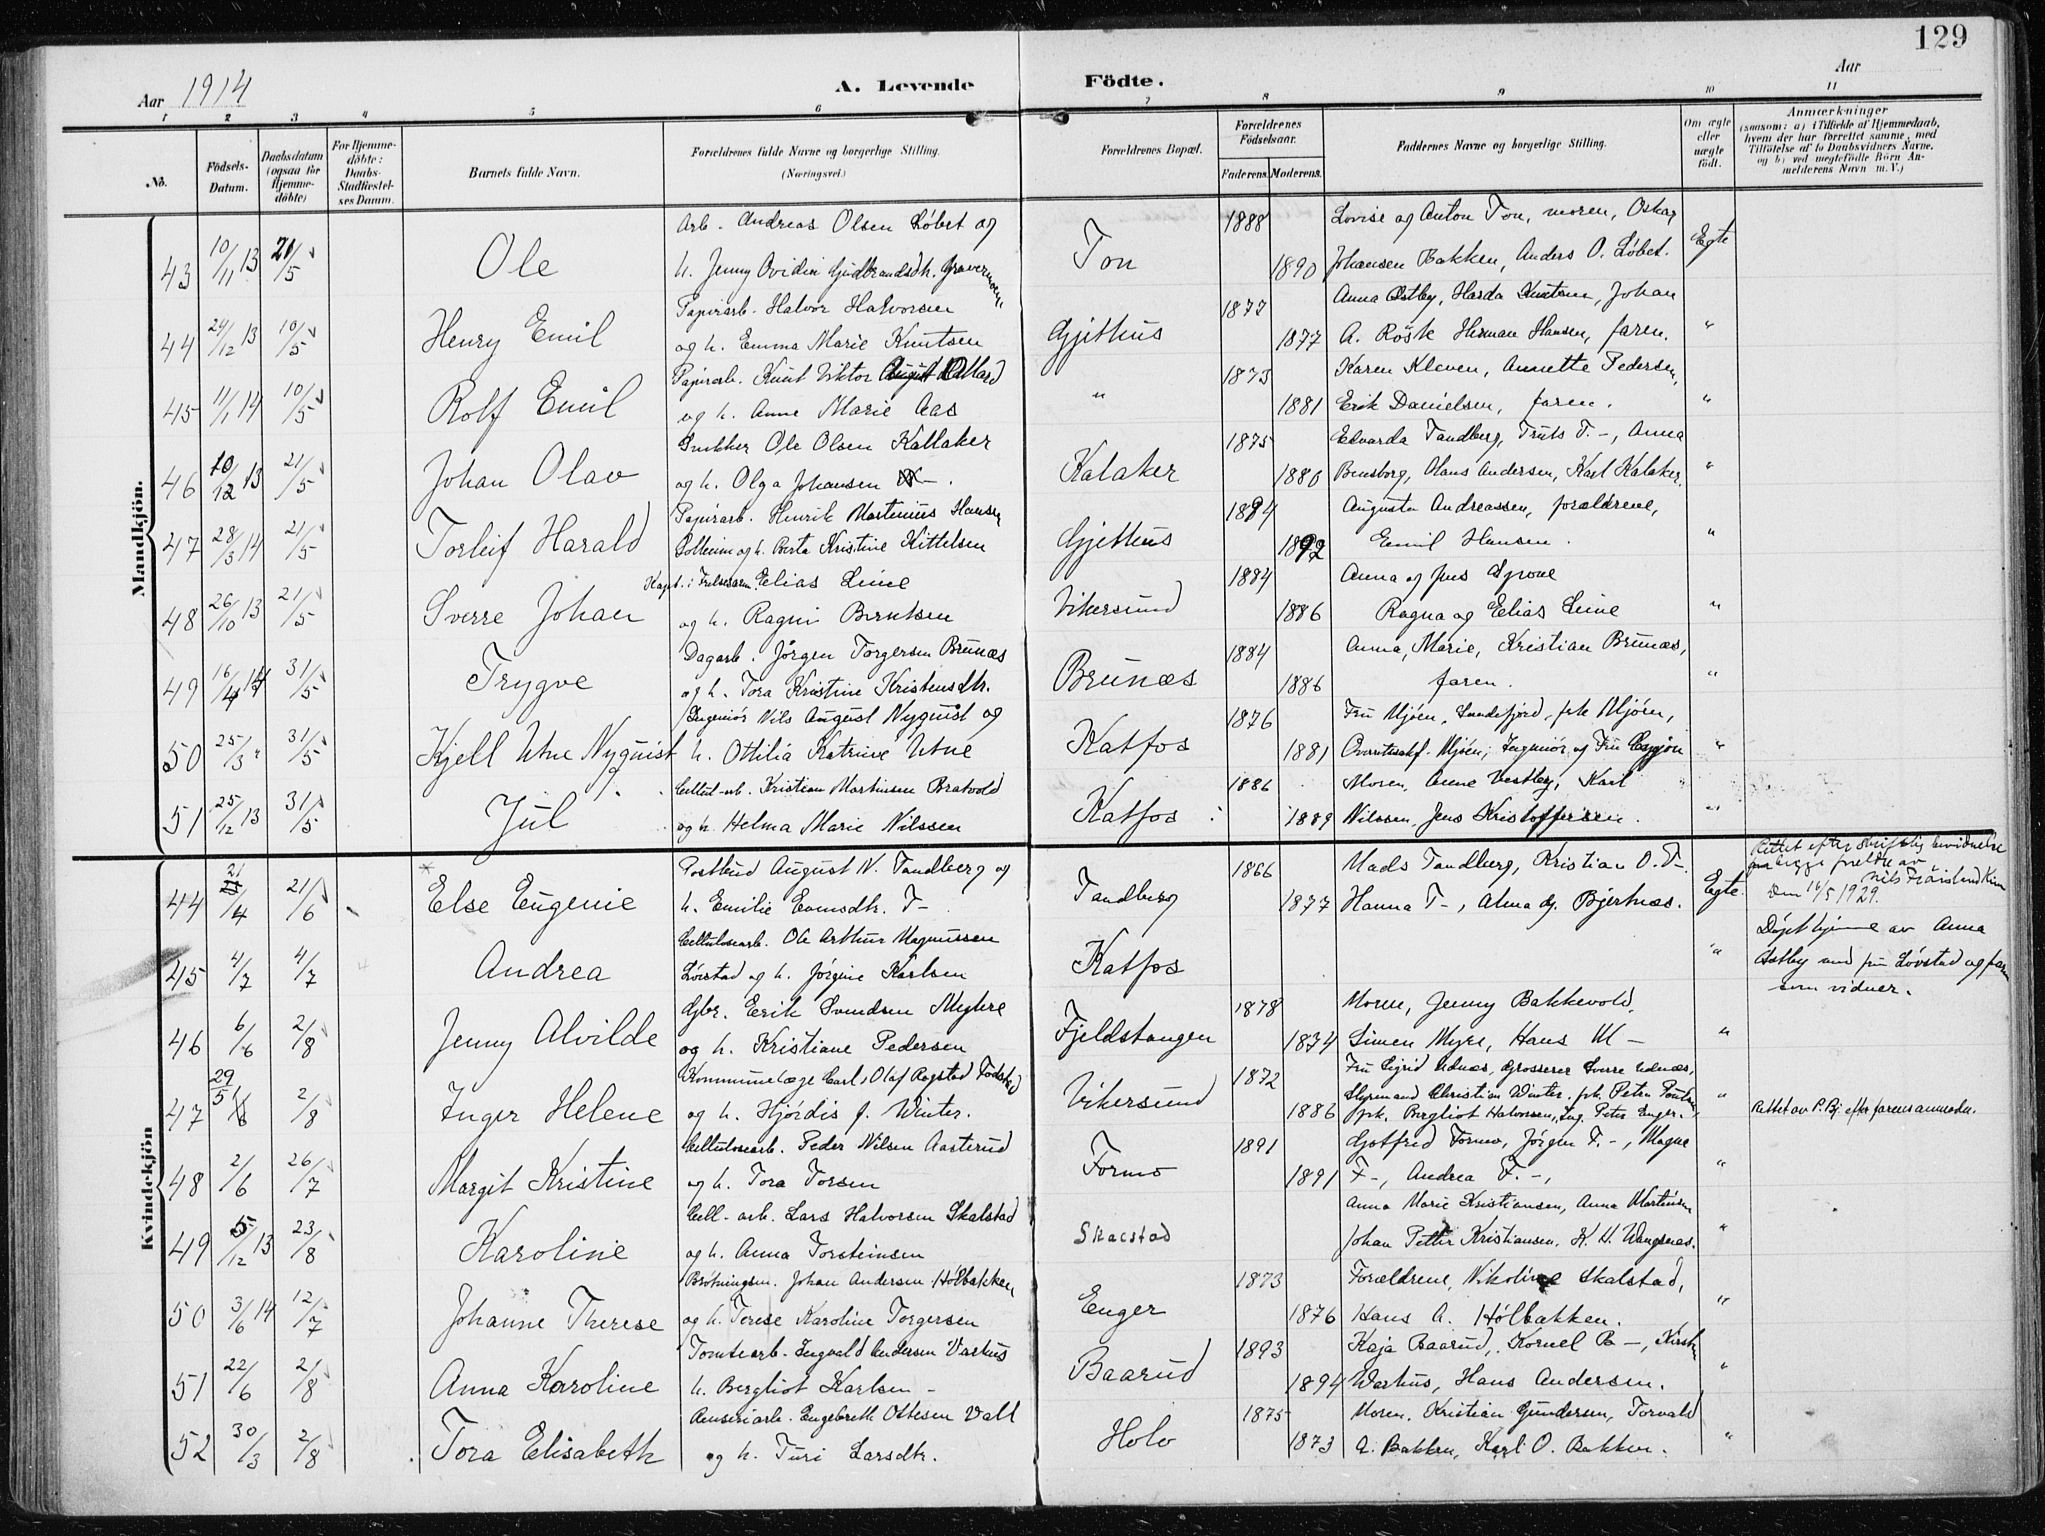 129
Aar 1914
A. Levende Födte.
Aar
1 2 3 4 5 6 7 8 9 10 11
No.
Födsels-Datum.
Daabsdatum (ogsaa for Hjemme-döbte)
For Hjemme-döbte: Daabs-Stadfæstel-ses Datum.
Barnets fulde Navn.
Forældrenes fulde Navne og borgerlige Stilling. (Næringsvei.)
Forældrenes Bopæl.
Forældrenes Födselsaar.
Faderens. Moderens.
Faddernes Navne og borgerlige Stilling.
Om ægte eller uægte födt.
Anmærkninger
(saasom: a) i Tilfælde af Hjemmedaab, hvem der har forrettet samme, med Tilföielse af to Daabsvidners Navne, og b) ved uægtefödte Börn An-melderens Navn m. V.)
Mandkjön.
43 10/11 13 21/5 Ole Arb. Andreas Olsen Løbet og Ton 1888 Lovise og Anton Ton, moren, Oskar Egte
h. Jenny Ovidia Gudbrandsdtr. 1890 Johansen Bakken, Anders O. Løbet.
44 24/12 13 10/5 Henry Emil Papirarb. Halvor Halvorsen Gjethus 1877 Anna Østby, Harda Knutsen, Johan "
og h. Emma Marie Knutsen 1877 A. Røsk Herman Hansen, faren.
45 11/1 14 10/5 Rolf Emil Papirarb. Knut Viktor August " 1873 Karen Kleven, Annette Pedersen, "
og h. Anne Marie Aas 1881 Erik Danielsen, faren.
46 10/12 13 21/5 Johan Olav Snekker Ole Olsen Kallaker Kalaker 1875 Edvarda Tandberg, Truls T. -, Anna "
og h. Olga Johansen 1880 Bensborg, Hans Andersen, Karl Kalaker.
47 28/3 14 21/5 Torleif Harald Papirarb. Henrik Martinius Hansen Gjethus 1894 Augusta Andreassen, forældrene, "
Solheim og h. Berta Kristine Kittelsen 1892 Emil Hansen.
48 26/10 13 21/5 Sverre Johan Kapt. i Frelsesarm. Elias Lime Vikersund 1884 Anna og Jens "
og h. Ragni Berntsen 1886 Ragna og Elias Lime
49 16/4 14 31/5 Trygve Dagarb. Jørgen Torgersen Brunæs Brunæs 1884 Anna, Marie, Kristian Brunæs, "
og h. Tora Kristine Kristensdtr. 1886 faren.
50 25/3 " 31/5 Kjell Utne Nyquist Ingeniør Nils August Nyquist og Katfos 1876 Fru Mjøen, Sandefjord, frk Mjøen, "
h. Ottilia Katrine Utne 1881 Mjøen, Ingeniør og Fru
51 25/12 13 31/5 Jul Cellul-arb. Kristian Martinsen Bratvold Katfos 1886 Moren, Anne Vestby, Karl "
og h. Helma Marie Nilssen 1889 Nilssen, Jens Kristoffersen.
Kvindekjön
44 21/4 21/6 * Else Eugenie Postbud August N. Tandberg og Tandberg 1866 Mads Tandberg, Kristian O. T- Egte. Rettet efter skriftlig bevidnelse
h. Emilie Evensdtr. T- 1877 Hanna T-, Alma og Bjertnæs. Den 16/5 1929.
45 4/7 4/7 Andrea Cellulosearb. Ole Arthur Magnussen Katfos " Døpt hjemme av Anna
Lövstad og h. Jörgine Karlsen Østby med fru Lövstad og faren
som vidner.
46 6/6 2/8 Jenny Alvilde Gbr. Erik Svendsen Myhre Fjeldstangen 1878 Moren, Jenny Bakkevold, "
og h. Kristiane Pedersen 1874 Simen Myre, Hans M -
47 29/5 2/8 Inger Helene Kommunelæge Carl Olaf Rogstad Vikersund 1872 Fru Sigrid Udnæs, Grosserer Sverre Udnæs, "
og h. Hjördis f. Winter. 1886 Styrmand Christian Winter, frk. Petra
frk. Bergliot Halvorsen, Ing. Peter Enger. Rettet av P. Bj. efter farens anmodn.
48 2/6 26/7 Margit Kristine Cellulosearb. Peder Nilsen Aasterud Formo 1891 Gotfred Formo, Jørgen F. -, Magne "
og h. Tora Torsen 1891 F-, Andrea F. -,
49 5/12 13 23/8 Karoline Cell-arb. Lars Halvorsen Skalstad Skalstad Anna Marie Kristiansen, Anna Martinsen "
og h. Anna Torsteinsen Johan Petter Kristiansen, K. H. Wangsnæs.
50 3/6 14 12/7 Johanne Therese Brøtningsm. Johan Andersen Hölbakken Enger 1873 Forældrene, Nikoline Skalstad, "
og h. Terese Karoline Torgersen 1876 Hans A. Hölbakken.
51 22/6 2/8 Anna Karoline Tomtearb. Ingvald Andersen Varhus Baarud 1893 Kaja Baarud, Kornel B -, "
h. Bergliot Karlsen - 1894 Warhus, Hans Andersen.
52 30/3 2/8 Tora Elisabeth Engebreth Ottesen Vall Holo 1875 Moren, Kristian Gundersen, Torvald "
og h. Turi Larsdtr. 1873 A. Bakken, Karl O. Bakken.